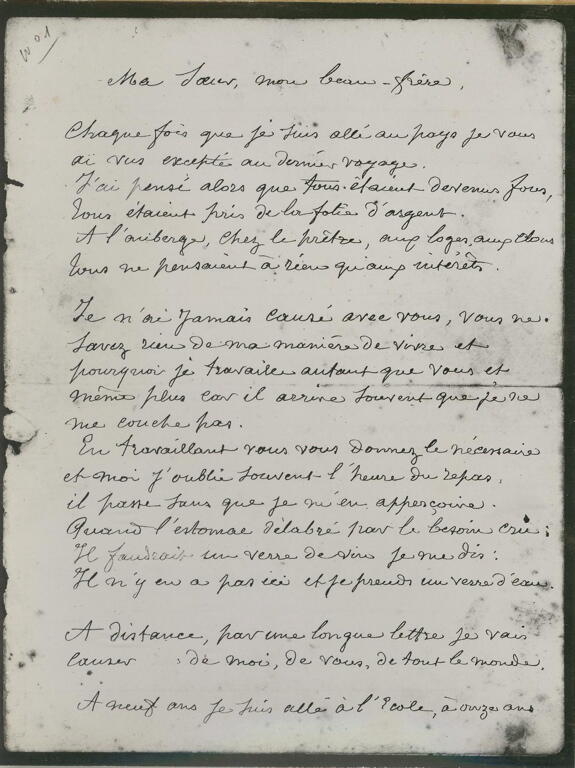 W01
Ma Sœur, mon beau-frère,
Chaque fois que je suis allé au pays je vous
ai vus excepté au dernier voyage.
J'ai pensé alors que tous étaient devenus fous,
tous étaient pris de la folie d'argent.
A l'auberge, chez le prêtre, aux loges, aux clous
tous ne pensaient à rien qu'aux intérêts.
Je n'ai jamais causé avec vous, vous ne
savez rien de ma manière de vivre et
pourquoi je travaile autant que vous et
même plus car il arrive souvent que je ne
me couche pas.
En travaillant vous vous donnez le nécessaire
et moi j'oublie souvent l'heure du repas,
il passe sans que je m'en apperçoive.
Quand l'estomac délabré par le besoin crie:
Il faudrait un verre de vin je me dis:
Il n'y en a pas ici et je prends un verre d'eau.
A distance, par une longue lettre je vais
causer : de moi, de vous, de tout le monde.
A neuf ans je suis allé à l'Ecole, à onze ans